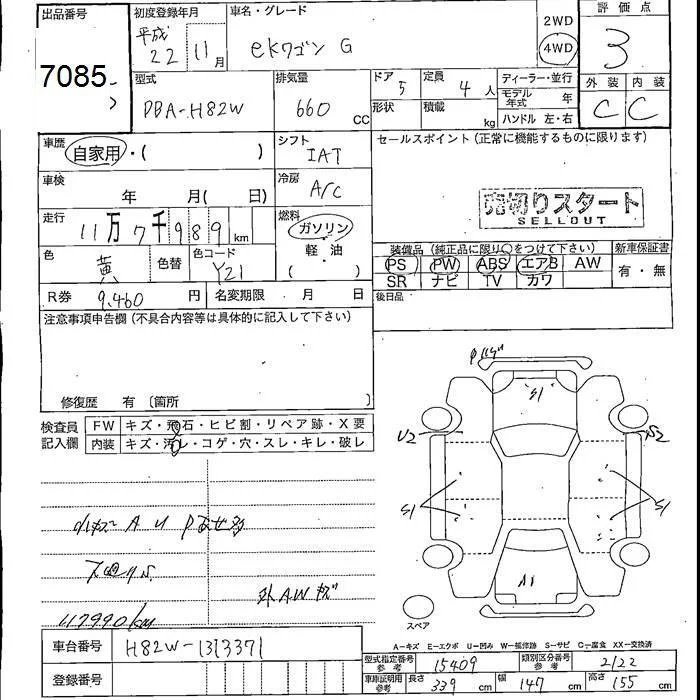 出品番号
7085
初度登録年月
平成
22 11月
車名・グレード
eKワゴン G
2WD
4WD
評価点
3
型式
DBA-H82W
排気量
660 CC
ドア 5
形状
定員 4 人
積載 kg
ディーラー・並行
モデル年式 年
ハンドル 左・右
外装 内装
C C
車歴
自家用・( )
シフト
IAT
セールスポイント(正常に機能するものに限ります)
車検
年 月( 日)
冷房
A/C
売切りスタート
SELLOUT
走行
11万7千989km
燃料
ガソリン
軽・油
( )
色
黄
色替
色コード
Y21
装備品(純正品に限り○をつけて下さい)
新車保証書
PS PW ABS エアB AW
有・無
SR ナビ TV カワ
R券 9,460 円
名変期限 月 日
後日品
注意事項申告欄(不具合内容等は具体的に記入して下さい)
修復歴 有〔箇所 〕
検査員
記入欄
FW キズ・飛石・ヒビ割・リペア跡・X要
内装 キズ・汚レ・コゲ・穴・スレ・キレ・破レ
S1
U2
S2
S1
S1
A1
スペア
小キズ A U
外AW キズ
47990km
A-キズ E-エクボ U-凹み W-補修跡 S-サビ C-腐食 XX-交換済
車台番号
H82W-1313371
登録番号
型式指定番号
参考
15409
類別区分番号
参考
2122
車庫証明用
参考
長さ 339 cm
幅 147 cm
高さ 155 cm